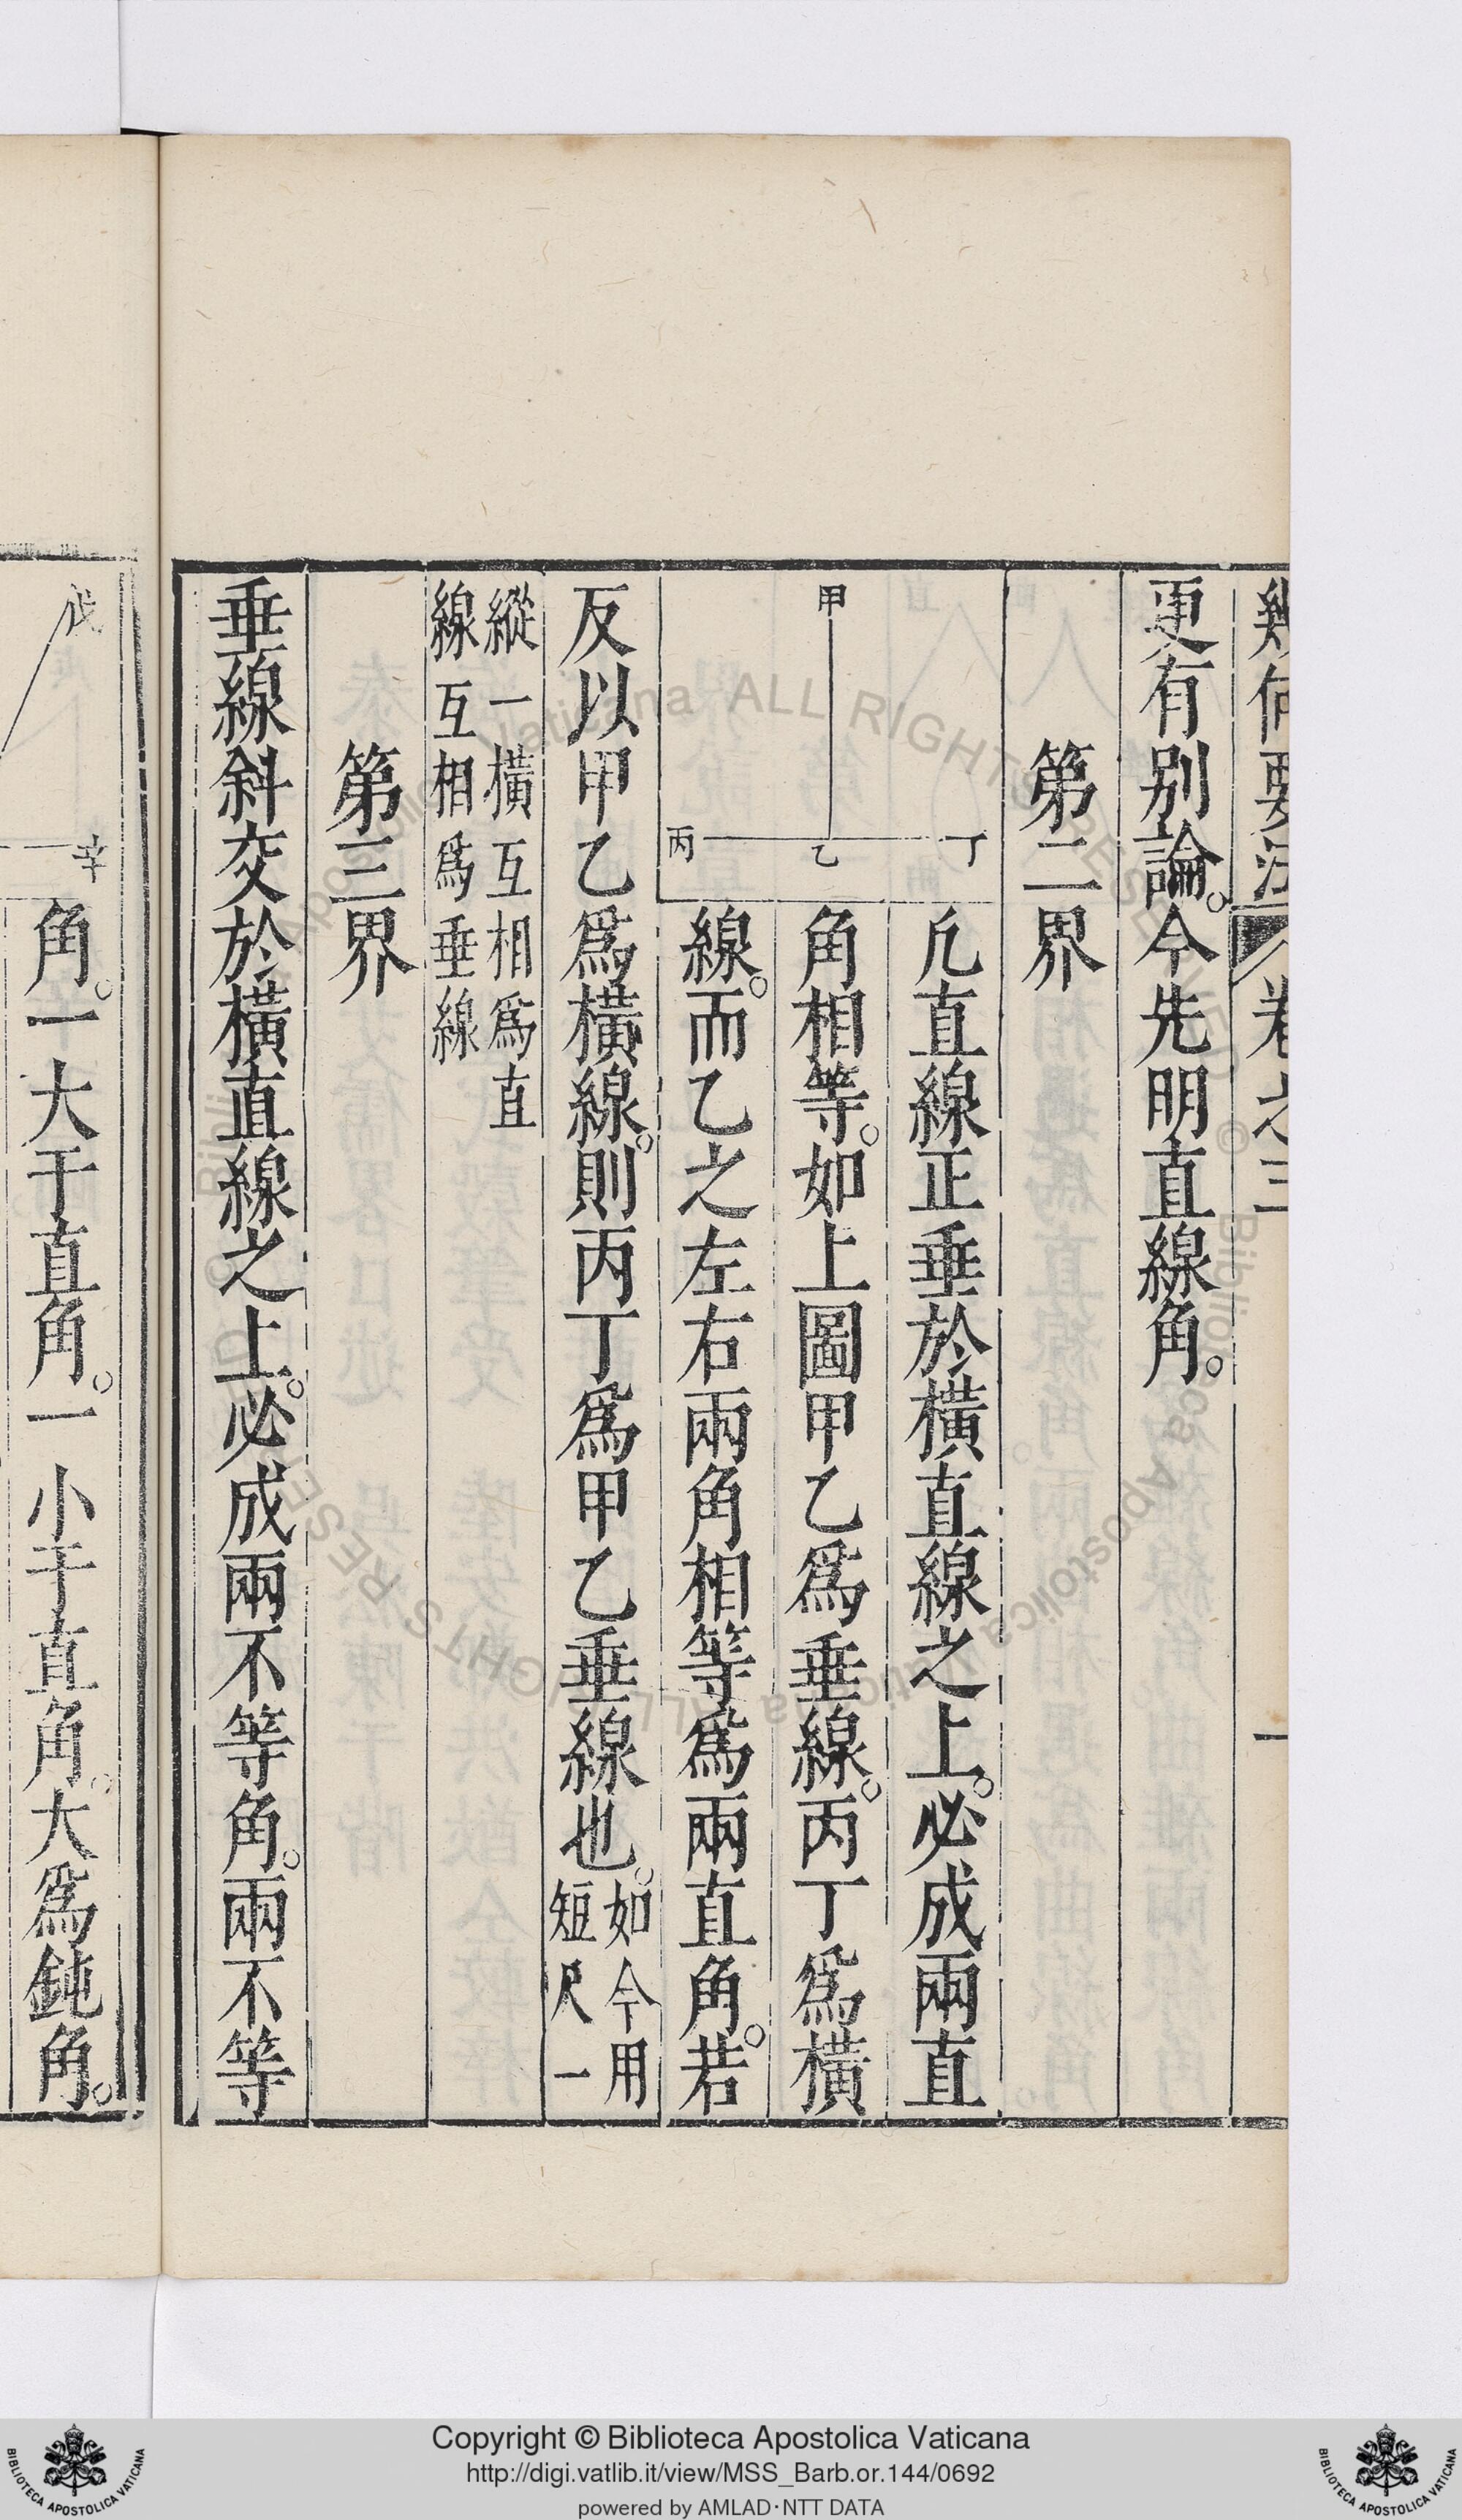 幾何要法 卷之三 一
更有別論。今先明直線角。
第二界
凡直線正垂於橫直線之上。必成兩直
角相等。如上圖甲乙爲垂線。丙丁爲橫
線。而乙之左右兩角相等爲兩直角。若
甲
丁
乙
丙
反以甲乙爲橫線。則丙丁爲甲乙垂線也。如今用
短尺一
縱一橫互相爲直
線互相爲垂線
第三界
垂線斜交於橫直線之上。必成兩不等角。兩不等
戊
辛
角。一大于直角。一小于直角。大爲鈍角。
Copyright © Biblioteca Apostolica Vaticana
http://digi.vatlib.it/view/MSS_Barb.or.144/0692
powered by AMLAD·NTT DATA
BIBLIOTECA APOSTOLICA VATICANA
BIBLIOTECA APOSTOLICA VATICANA